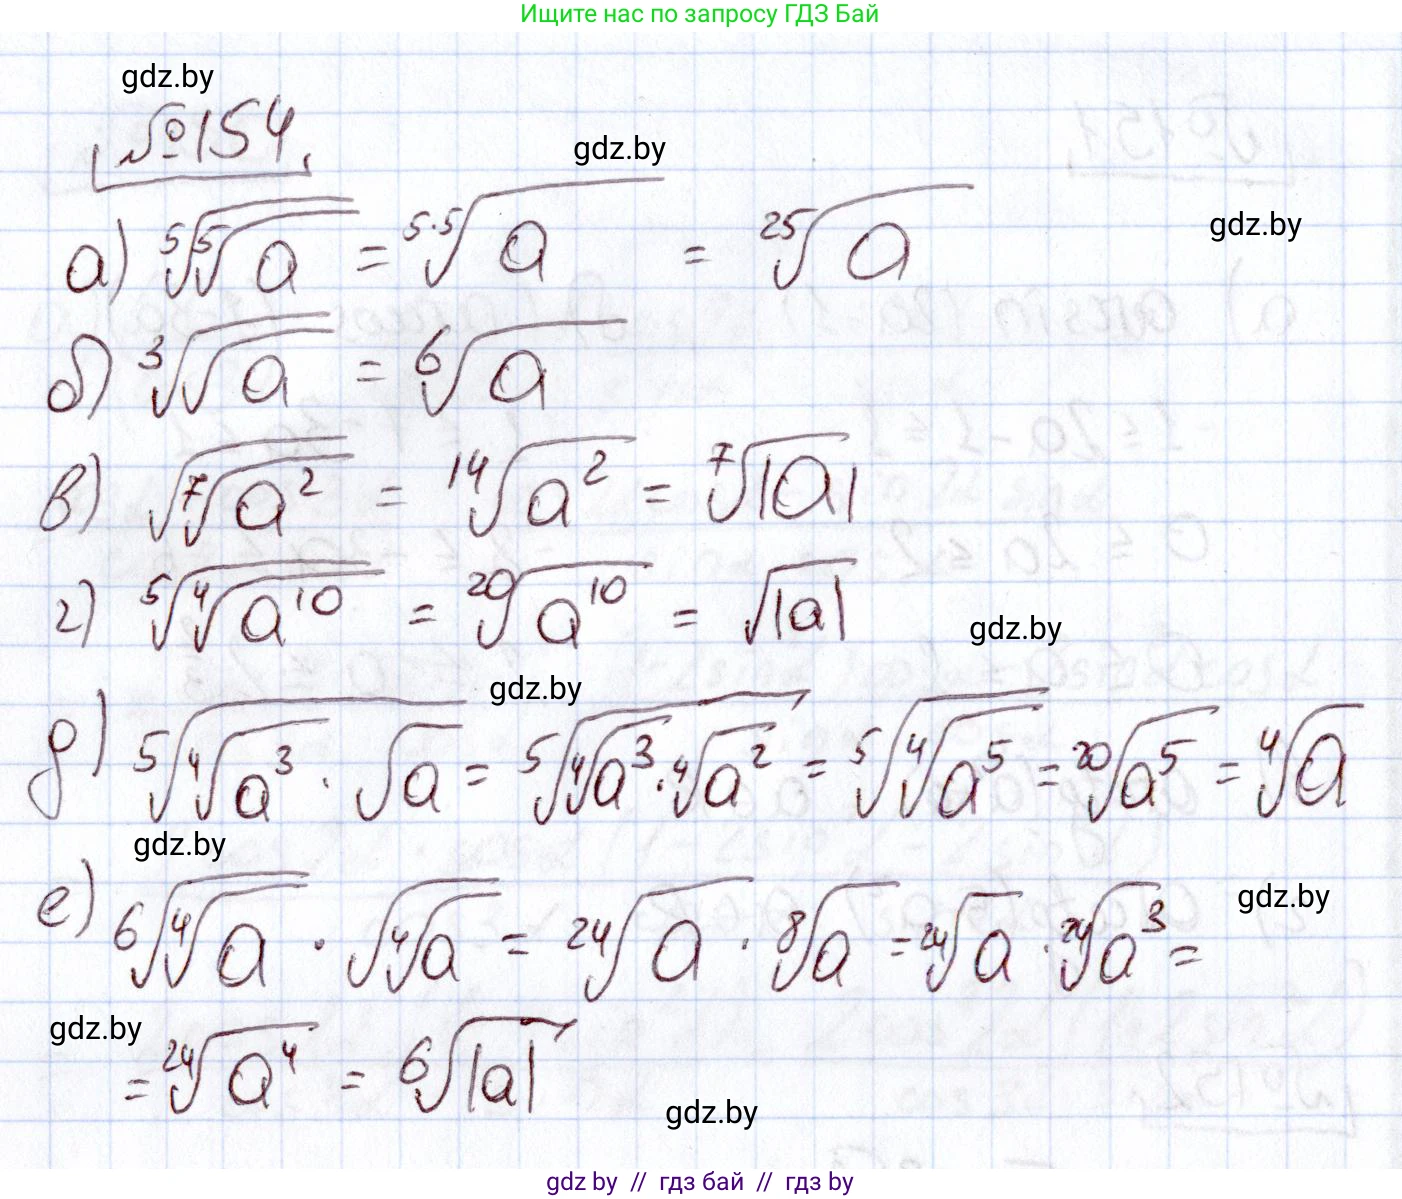 Ищите нас по запросу ГДЗ Бай
gdz.by
№154.
gdz.by
gdz.by
а) ⁵√(⁵√a) = ⁵·⁵√a = ²⁵√a
б) ³√(√a) = ⁶√a
в) √(⁷√(a²)) = ¹⁴√(a²) = ⁷√|a|
г) ⁵√(⁴√(a¹⁰)) = ²⁰√(a¹⁰) = √|a|
gdz.by
gdz.by
д) ⁵√(⁴√(a³) · √a) = ⁵√(⁴√(a³) · ⁴√(a²)) = ⁵√(⁴√(a⁵)) = ²⁰√(a⁵) = ⁴√a
gdz.by
е) ⁶√(⁴√a) · √(⁴√a) = ²⁴√a · ⁸√a = ²⁴√a · ²⁴√(a³) =
gdz.by
gdz.by
= ²⁴√(a⁴) = ⁶√|a|
gdz.by
gdz by // гдз бай // гдз by